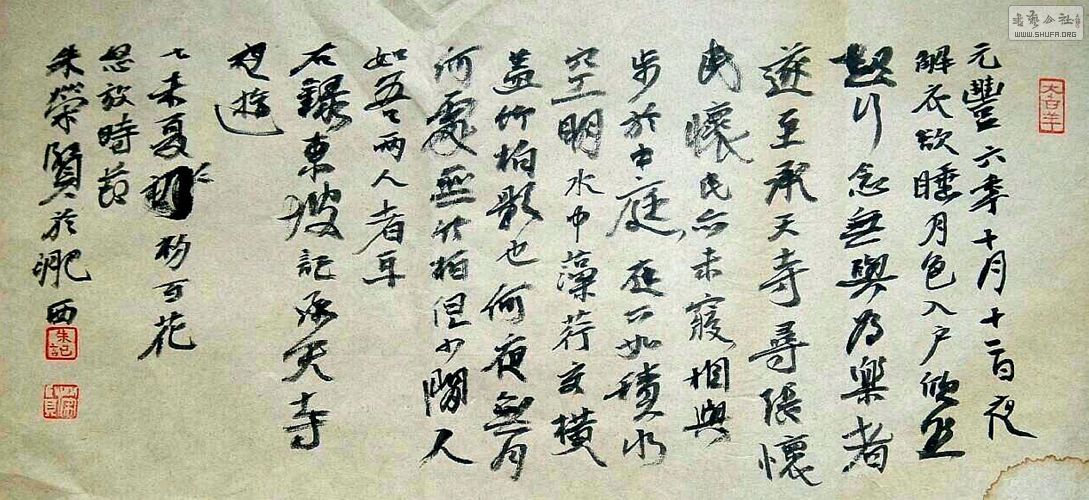 书艺公社
WWW.SHUFA.ORG
元豐六年十月十二日夜
解衣欲睡月色入户欣然
起行念無與为樂者
遂至承天寺尋張懷
民懷民亦未寢相與
步於中庭庭下如積水
空明水中藻荇交橫
蓋竹柏影也何夜無月
何處無竹柏但少閒人
如吾兩人者耳
右錄東坡記承天寺
夜遊
乙未夏初於百花
怒放時節
朱榮賢於肥西
朱記